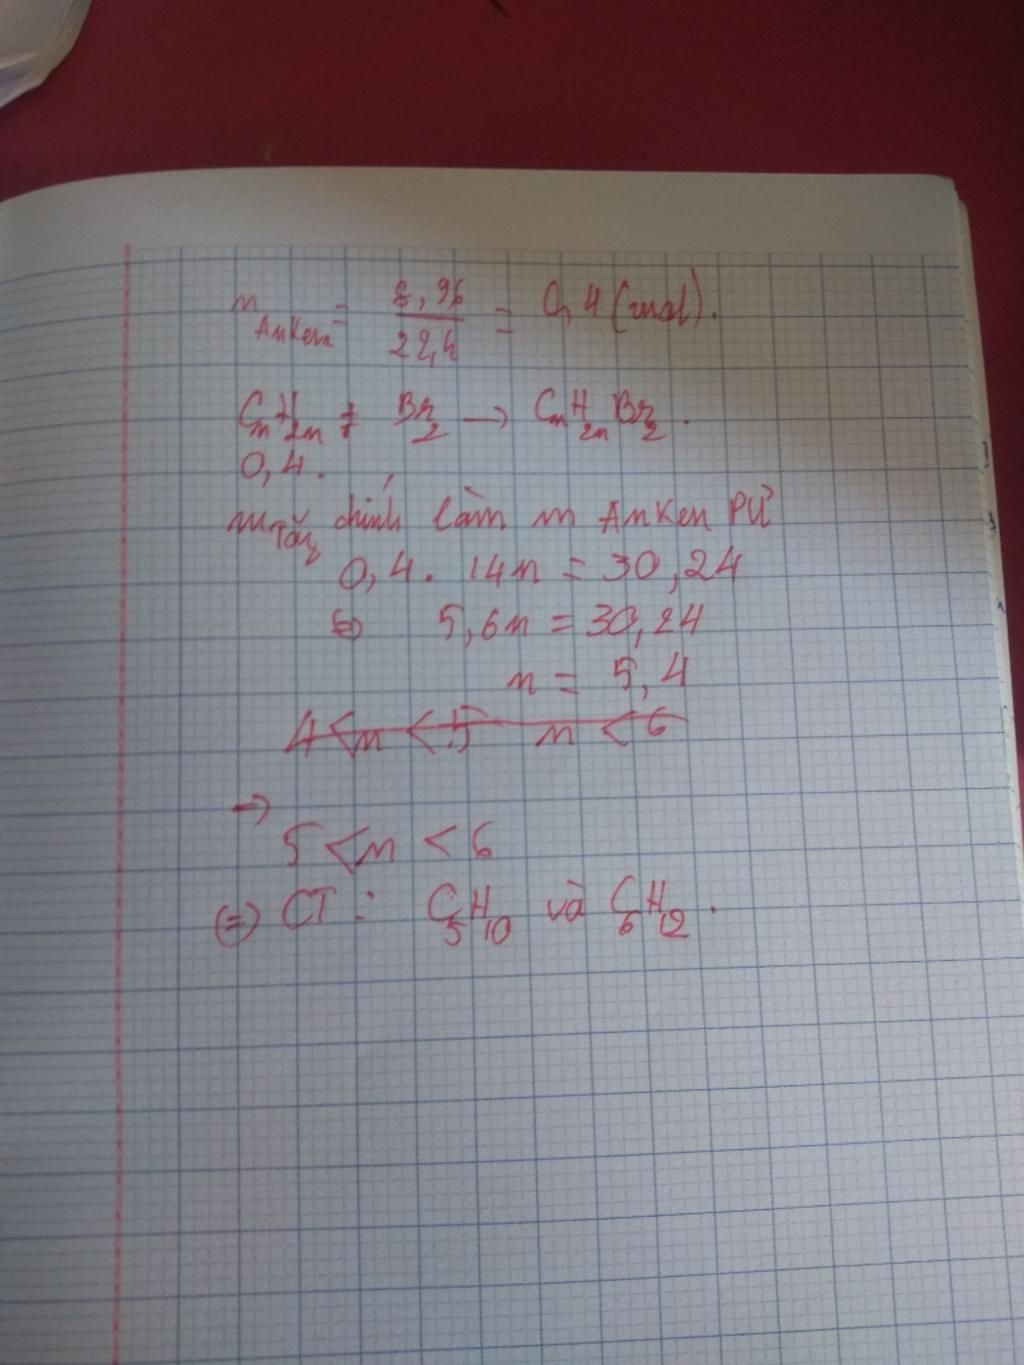 n Anken = 8,96 / 22,4 = 0,4 (mol).
CnH2n + Br2 → CnH2nBr2.
0,4.
m Tăng chính làm m Anken PƯ
0,4. 14n = 30,24
⇔ 5,6n = 30,24
n = 5,4
4 < n < 5 n < 6
→
5 < n < 6
(=) CT : C5H10 và C6H12.